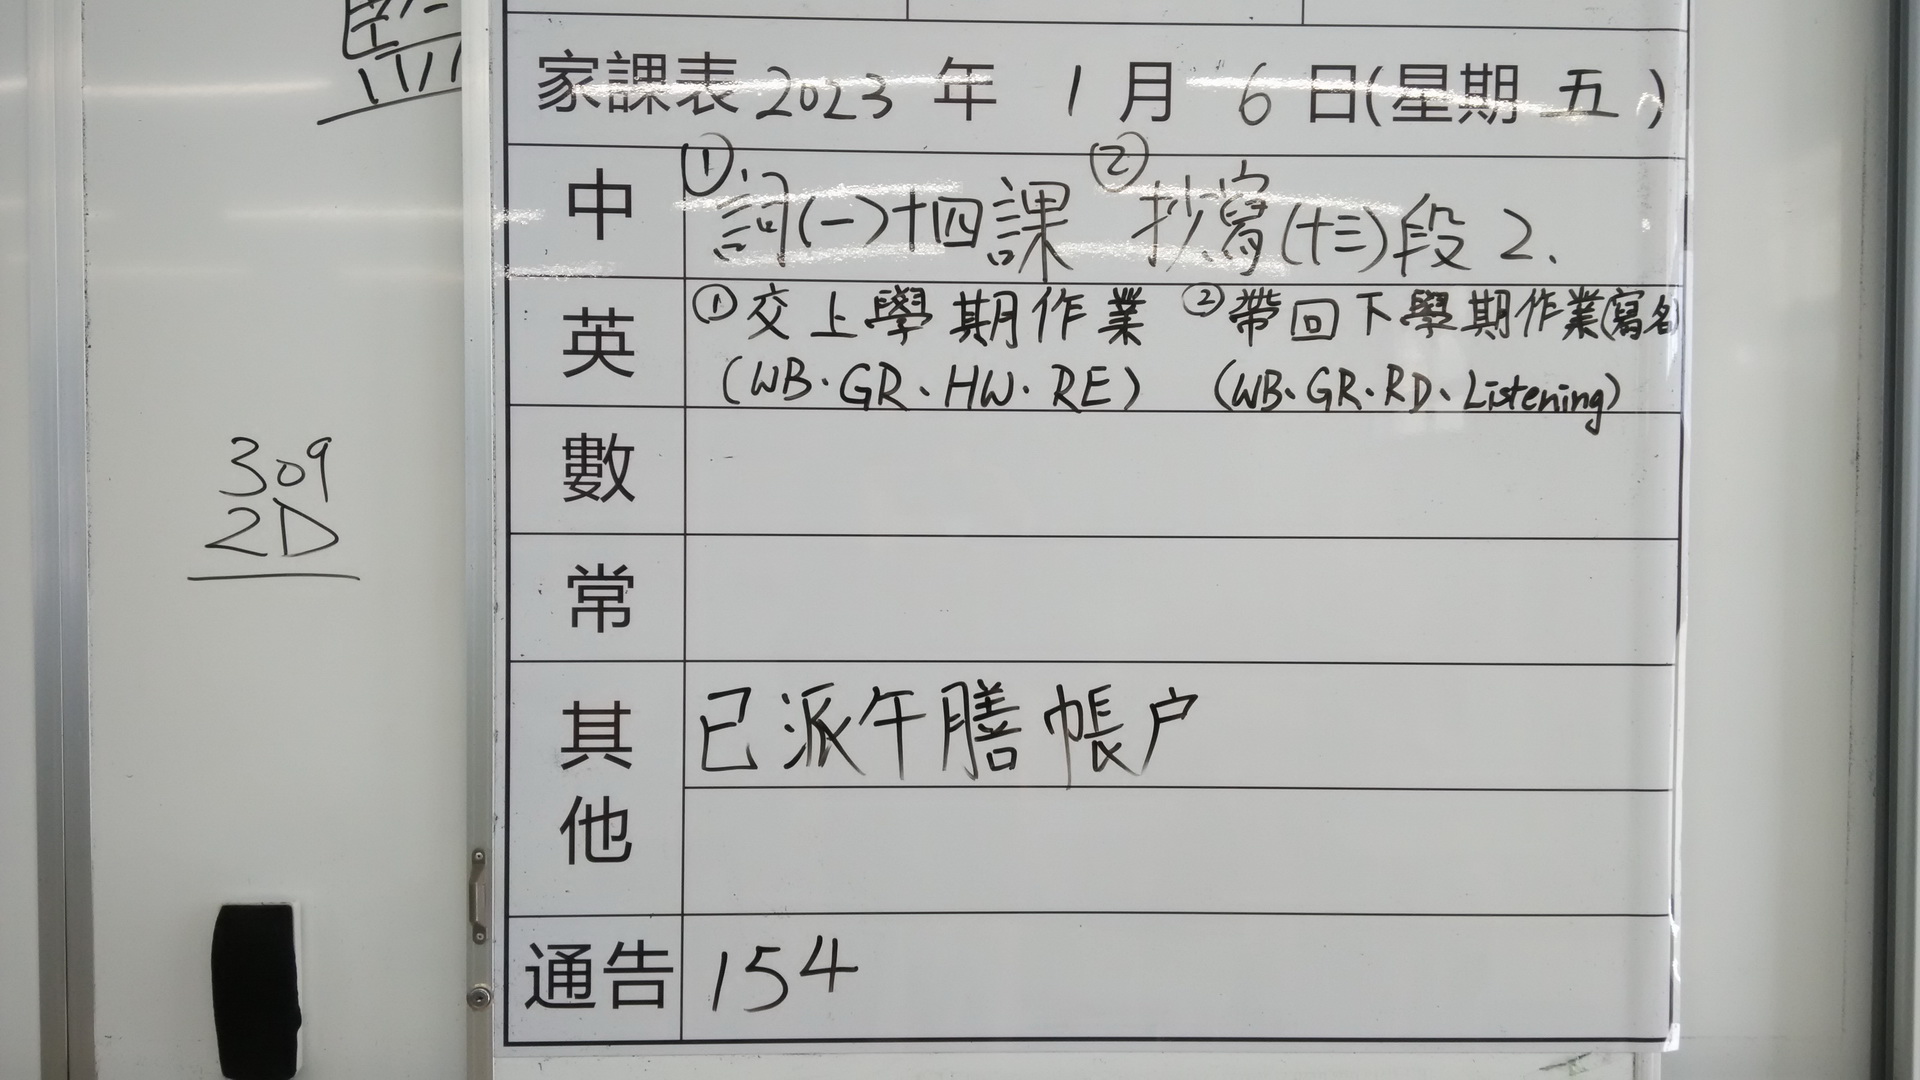 家課表 2023 年 1 月 6 日(星期 五)
中 ①詞(一)十四課 ②抄寫(十三)段2.
英 ①交上學期作業 ②帶回下學期作業(寫名)
(WB、GR、HW、RE) (WB、GR、RD、Listening)
數
常
其他 已派午膳帳户
通告 154
309
2D